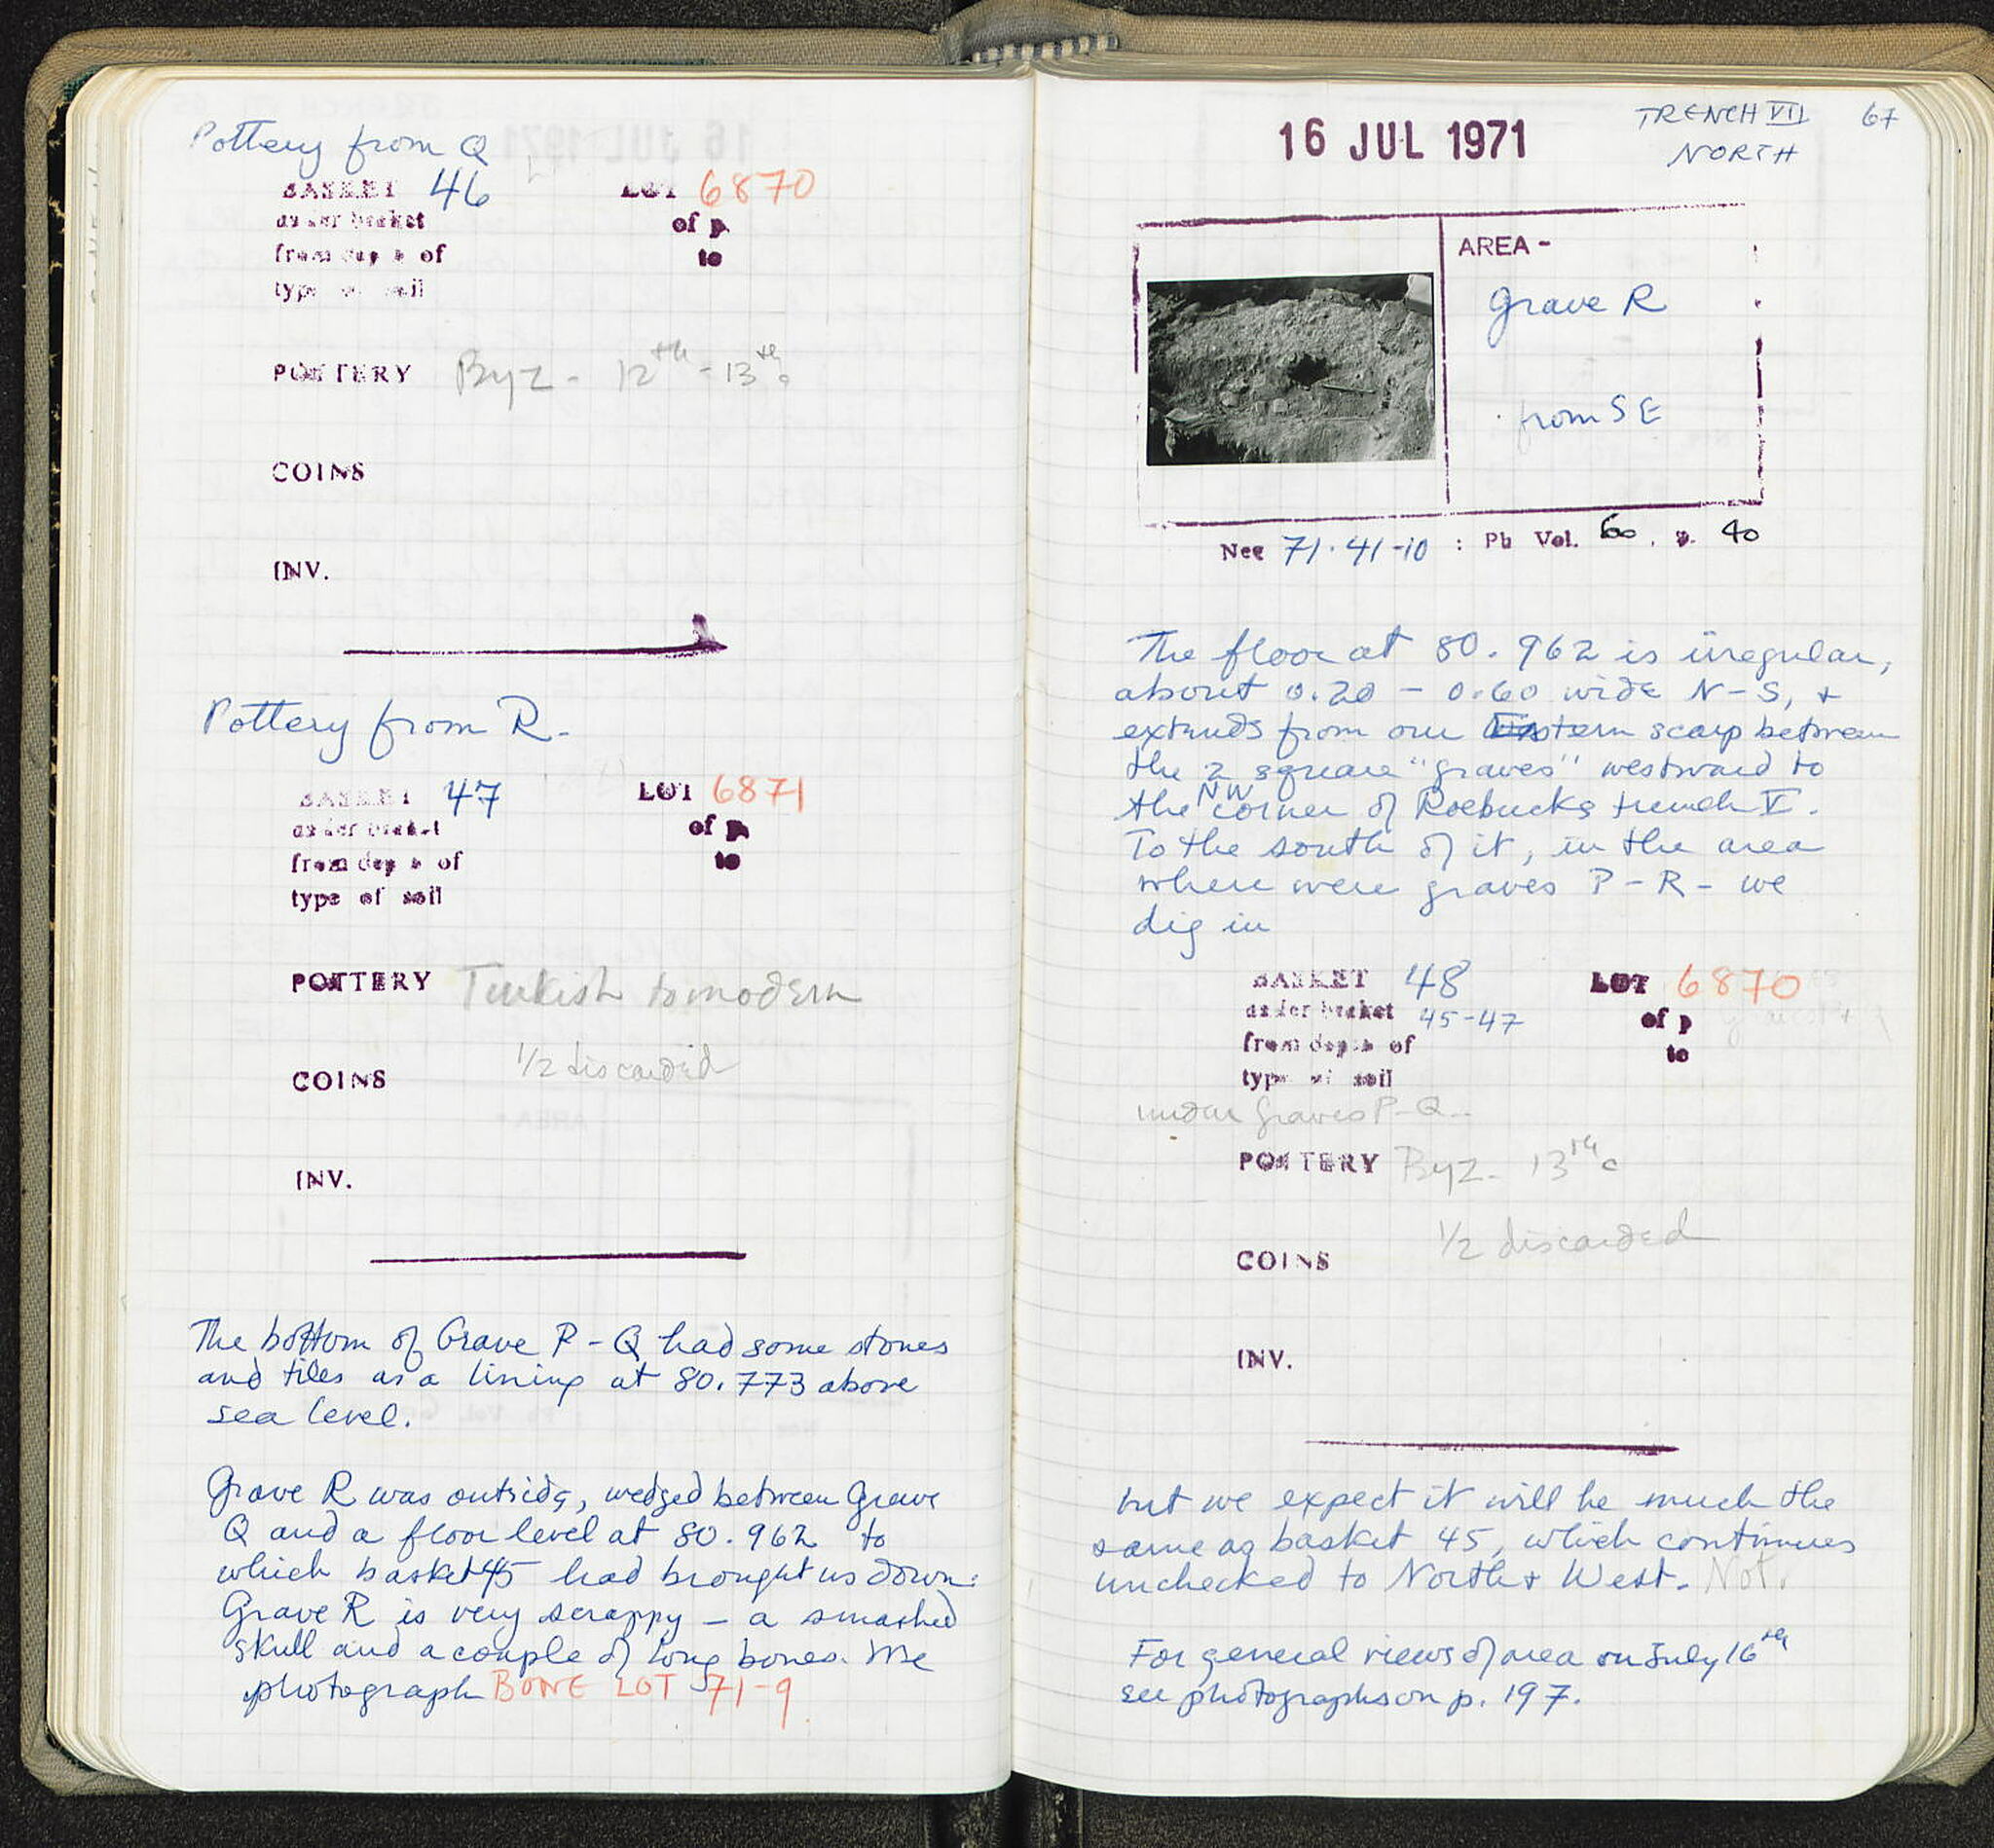 Pottery from Q
BASKET 46 LOT 6870
under basket of p.
from depth of to
type of soil
POTTERY Byz - 12th - 13th c
COINS
INV.
Pottery from R.
BASKET 47 LOT 6871
under basket of p.
from depth of to
type of soil
POTTERY Turkish to modern
1/2 discarded
COINS
INV.
The bottom of Grave P - Q had some stones
and tiles as a lining at 80.773 above
sea level.
Grave R was outside, wedged between Grave
Q and a floor level at 80.962 to
which basket 45 had brought us down.
Grave R is very scrappy - a smashed
skull and a couple of long bones. We
photograph BONE LOT 71-9
16 JUL 1971
TRENCH VII 67
NORTH
AREA -
Grave R
from SE
Neg 71-41-10 : Ph Vol. 60, p. 40
The floor at 80.962 is irregular,
about 0.20 - 0.60 wide N-S, +
extends from our Eastern scarp between
the 2 square "graves" westward to
the NW corner of Roebucks trench V.
To the south of it, in the area
where were graves P-R- we
dig in
BASKET 48 LOT 6870
under basket 45-47 of p
from depth of to
type of soil
under graves P-Q..
POTTERY Byz - 13th c
1/2 discarded
COINS
INV.
but we expect it will be much the
same as basket 45, which continues
unchecked to North + West. Not.
For general views of area on July 16th
see photographs on p. 197.